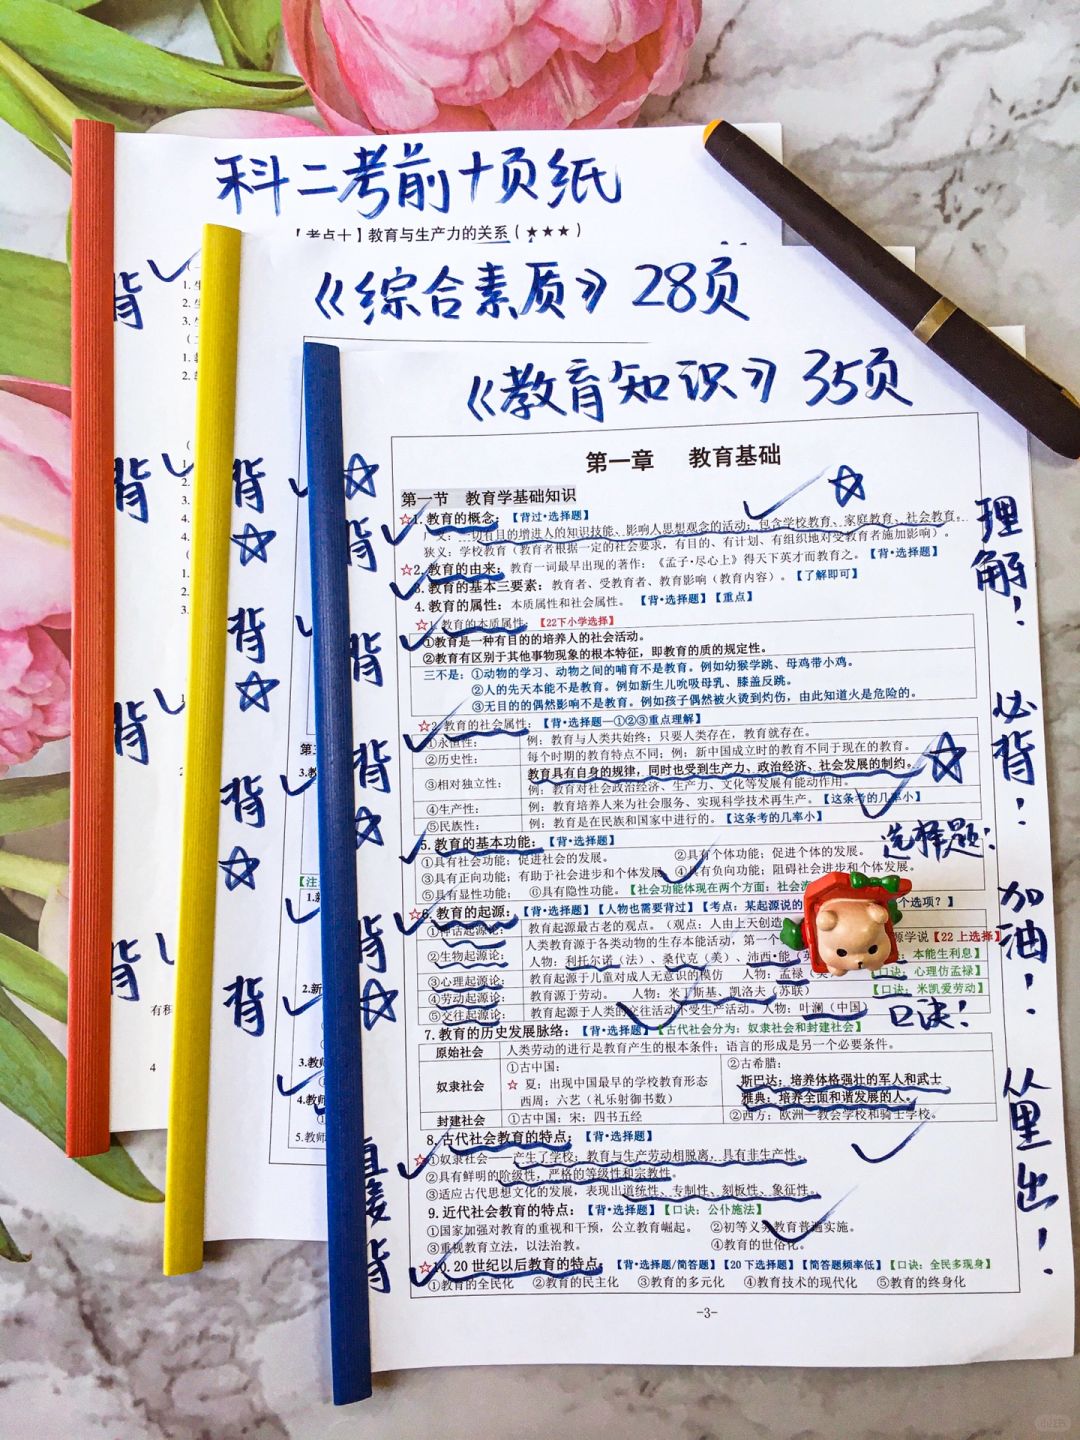 科二考前十页纸
【考点十】教育与生产力的关系(★★★)
《综合素质》28页
《教育知识》35页
第一章 教育基础
第一节 教育学基础知识
☆1.教育的概念:【背过•选择题】
广义:一切有目的增进人的知识技能、影响人思想观念的活动;包含学校教育、家庭教育、社会教育。
狭义:学校教育(教育者根据一定的社会要求,有目的、有计划、有组织地对受教育者施加影响)。
☆2.教育的由来:教育一词最早出现的著作:《孟子·尽心上》得天下英才而教育之。【背•选择题】
3.教育的基本三要素:教育者、受教育者、教育影响(教育内容)。【了解即可】
4.教育的属性:本质属性和社会属性。【背•选择题】【重点】
☆1.教育的本质属性:【22下小学选择】
①教育是一种有目的的培养人的社会活动。
②教育有区别于其他事物现象的根本特征,即教育的质的规定性。
三不是:①动物的学习、动物之间的哺育不是教育。例如幼猴学跳、母鸡带小鸡。
②人的先天本能不是教育。例如新生儿吮吸母乳、膝盖反跳。
③无目的的偶然影响不是教育。例如孩子偶然被火烫到灼伤,由此知道火是危险的。
☆2.教育的社会属性:【背•选择题—①②③重点理解】
①永恒性: 例:教育与人类共始终;只要人类存在,教育就存在。
②历史性: 每个时期的教育特点不同;例:新中国成立时的教育不同于现在的教育。
③相对独立性: 教育具有自身的规律,同时也受到生产力、政治经济、社会发展的制约。
例:教育对社会政治经济、生产力、文化等发展有能动作用。
④生产性: 例:教育培养人来为社会服务、实现科学技术再生产。【这条考的几率小】
⑤民族性: 例:教育是在民族和国家中进行的。【这条考的几率小】
5.教育的基本功能:【背•选择题】
①具有社会功能;促进社会的发展。 ②具有个体功能;促进个体的发展。
③具有正向功能;有助于社会进步和个体发展 ④具有负向功能;阻碍社会进步和个体发展。
⑤具有显性功能。 ⑥具有隐性功能。【社会功能体现在两个方面:社会
☆6.教育的起源:【背•选择题】【人物也需要背过】【考点:某起源说的 个选项?】
①神话起源论: 教育起源最古老的观点。(观点:人由上天创造 源学说【22 上选择】
②生物起源论: 人类教育源于各类动物的生存本能活动,第一个
人物:利托尔诺(法)、桑代克(美)、沛西•能 :本能生利息】
③心理起源论: 教育起源于儿童对成人无意识的模仿 人物:孟禄 【口诀:心理仿孟禄】
④劳动起源论: 教育源于劳动。 人物:米丁斯基、凯洛夫(苏联) 【口诀:米凯爱劳动】
⑤交往起源论: 教育起源于人类的交往活动不受生产活动。人物:叶澜(中国)
7.教育的历史发展脉络:【背•选择题】【古代社会分为:奴隶社会和封建社会】
原始社会 人类劳动的进行是教育产生的根本条件;语言的形成是另一个必要条件。
奴隶社会 ①古中国: ②古希腊:
☆ 夏:出现中国最早的学校教育形态 斯巴达:培养体格强壮的军人和武士
西周:六艺(礼乐射御书数) 雅典:培养全面和谐发展的人。
封建社会 ①古中国:宋:四书五经 ②西方:欧洲—教会学校和骑士学校。
8.古代社会教育的特点:【背•选择题】
☆①奴隶社会——产生了学校;教育与生产劳动相脱离,具有非生产性。
②具有鲜明的阶级性,严格的等级性和宗教性。
③适应古代思想文化的发展,表现出道统性、专制性、刻板性、象征性。
9.近代社会教育的特点:【背•选择题】【口诀:公仆施法】
①国家加强对教育的重视和干预,公立教育崛起。 ②初等义务教育普遍实施。
③重视教育立法,以法治教。 ④教育的世俗化。
☆10.20 世纪以后教育的特点:【背•选择题/简答题】【20 下选择题】【简答题频率低】【口诀:全民多现身】
①教育的全民化 ②教育的民主化 ③教育的多元化 ④教育技术的现代化 ⑤教育的终身化
-3-
理解!
必背!
选择题:
加油!
口诀!
从里出!
背
背
背
背
背
背
背
背
背
背
背
背
背
直接背